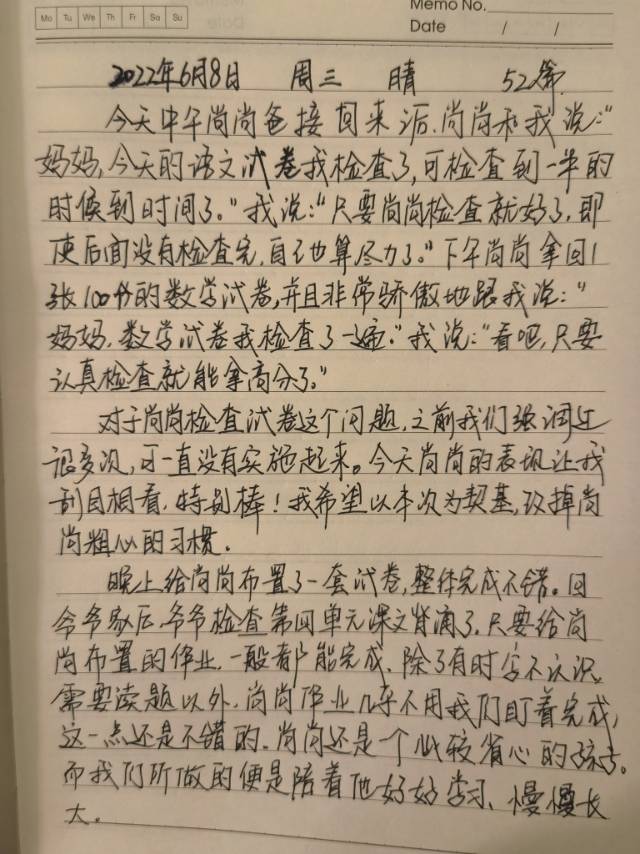 Memo No.
Mo Tu We Th Fr Sa Su
Date / /
2022年6月8日 周三 晴 52篇
今天中午尚尚爸接回来后,尚尚和我说:“
妈妈,今天的语文试卷我检查了,可检查到一半的
时候到时间了。”我说:“只要尚尚检查就好了,即
使后面没有检查完,自己也算尽力了。”下午尚尚拿回1
张100分的数学试卷,并且非常骄傲地跟我说:“
妈妈,数学试卷我检查了一遍。”我说:“看吧,只要
认真检查就能拿高分了。”
对于尚尚检查试卷这个问题,之前我们强调过
很多次,可一直没有实施起来。今天尚尚的表现让我
刮目相看,特别棒!我希望以本次为契基,改掉尚
尚粗心的习惯。
晚上给尚尚布置了一套试卷,整体完成不错。回
爷爷家后,爷爷检查第四单元课文背诵了,只要给尚
尚布置的作业,一般都能完成,除了有时字不认识,
需要读题以外,尚尚作业几乎不用我们盯着完成,
这一点还是不错的。尚尚还是一个比较省心的孩子。
而我们所做的便是陪着他好好学习、慢慢长
大。